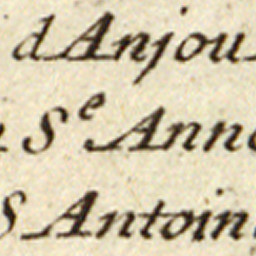 d'Anjou
Se Anne
S Antoin